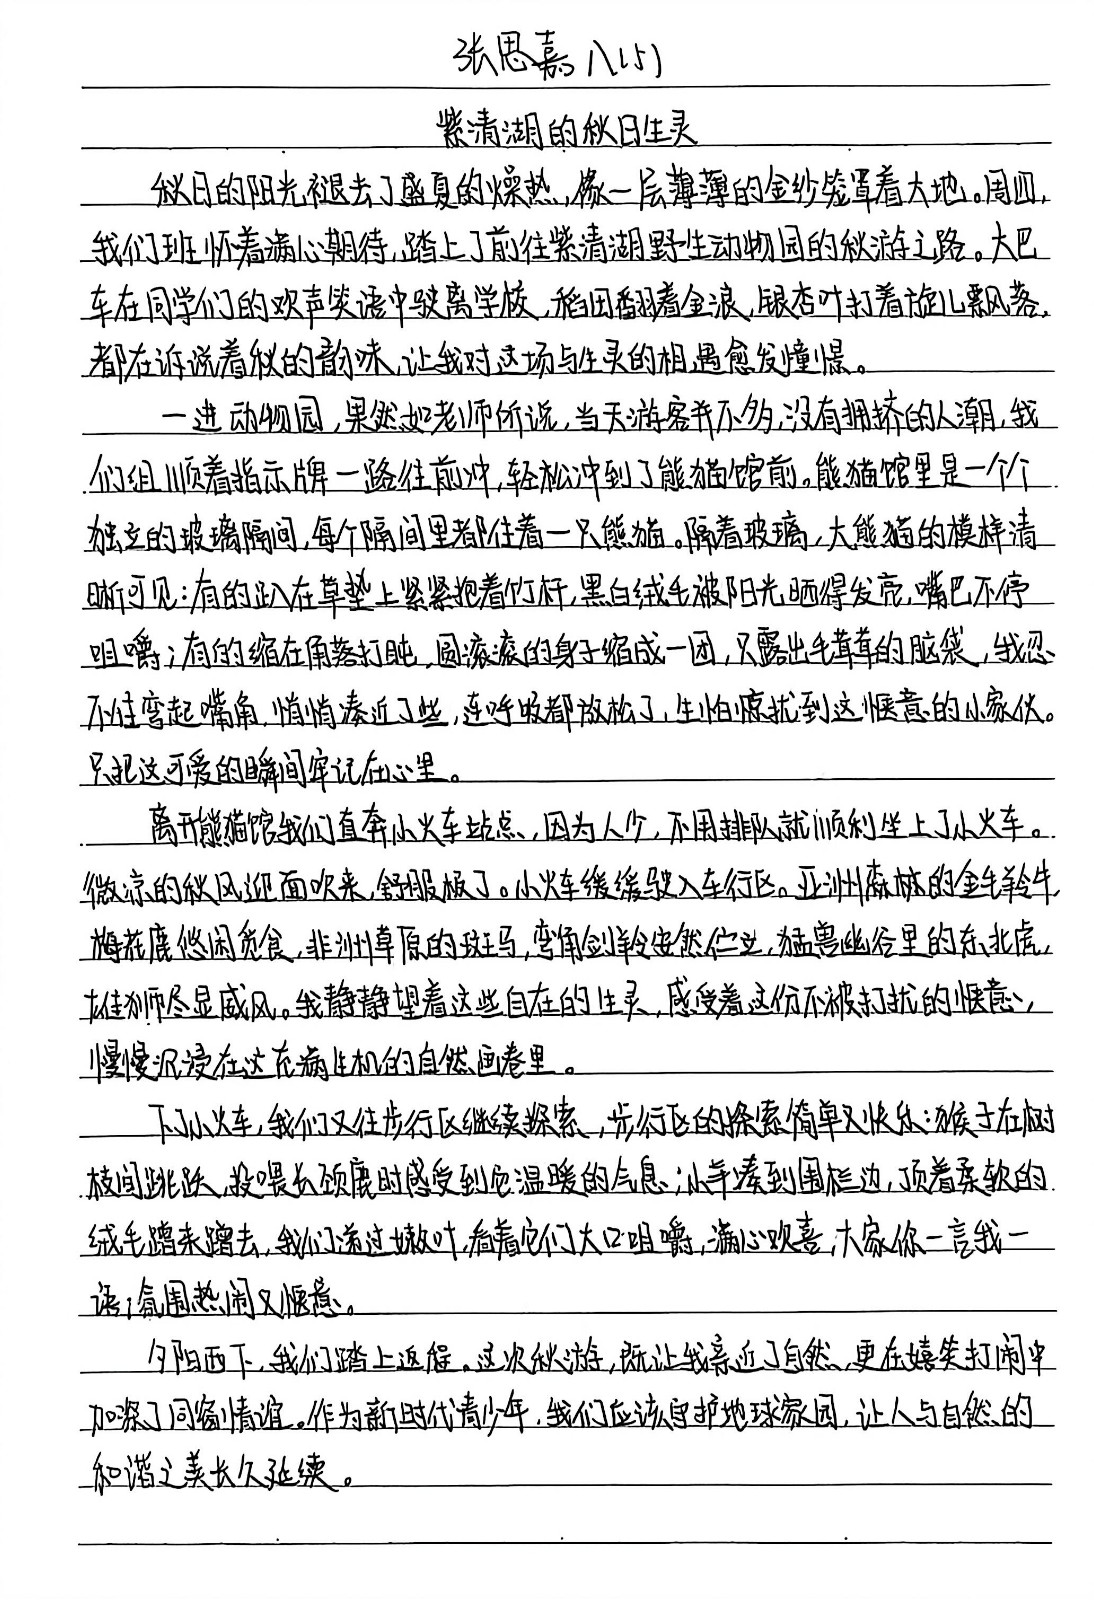 张思嘉 八(5)
紫清湖的秋日生灵
秋日的阳光褪去了盛夏的燥热,像一层薄薄的金纱笼罩着大地。周四,
我们班怀着满心期待,踏上了前往紫清湖野生动物园的秋游之路。大巴
车在同学们的欢声笑语中驶离学校,稻田翻着金浪,银杏叶打着旋儿飘落,
都在诉说着秋的韵味,让我对这场与生灵的相遇愈发憧憬。
一进动物园,果然如老师所说,当天游客并不多,没有拥挤的人潮,我
们组顺着指示牌一路往前冲,轻松冲到了熊猫馆前。熊猫馆里是一个个
独立的玻璃隔间,每个隔间里都住着一只熊猫。隔着玻璃,大熊猫的模样清
晰可见:有的趴在草垫上紧紧抱着竹杆,黑白绒毛被阳光晒得发亮,嘴巴不停
咀嚼;有的缩在角落打盹,圆滚滚的身子缩成一团,只露出毛茸茸的脑袋,我忍
不住弯起嘴角,悄悄凑近了些,连呼吸都放松了,生怕惊扰到这惬意的小家伙。
只把这可爱的瞬间牢记在心里。
离开熊猫馆我们直奔小火车站点,因为人少,不用排队就顺利坐上了小火车。
微凉的秋风迎面吹来,舒服极了。小火车缓缓驶入车行区。亚洲森林的金毛羚牛,
梅花鹿悠闲觅食,非洲草原的斑马,弯角剑羚安然伫立,猛兽幽谷里的东北虎,
雄狮尽显威风。我静静望着这些自在的生灵,感受着这份不被打扰的惬意,
慢慢沉浸在这充满生机的自然画卷里。
下了小火车,我们又往步行区继续探索,步行区的探索简单又快乐:猴子在树
枝间跳跃,投喂长颈鹿时感受到它温暖的气息;小羊凑到围栏边,顶着柔软的
绒毛蹭来蹭去,我们递过嫩叶,看着它们大口咀嚼,满心欢喜,大家你一言我一
语;氛围热闹又惬意。
夕阳西下,我们踏上返程。这次秋游,既让我亲近了自然,更在嬉笑打闹中
加深了同窗情谊。作为新时代青少年,我们应该守护地球家园,让人与自然的
和谐之美长久延续。